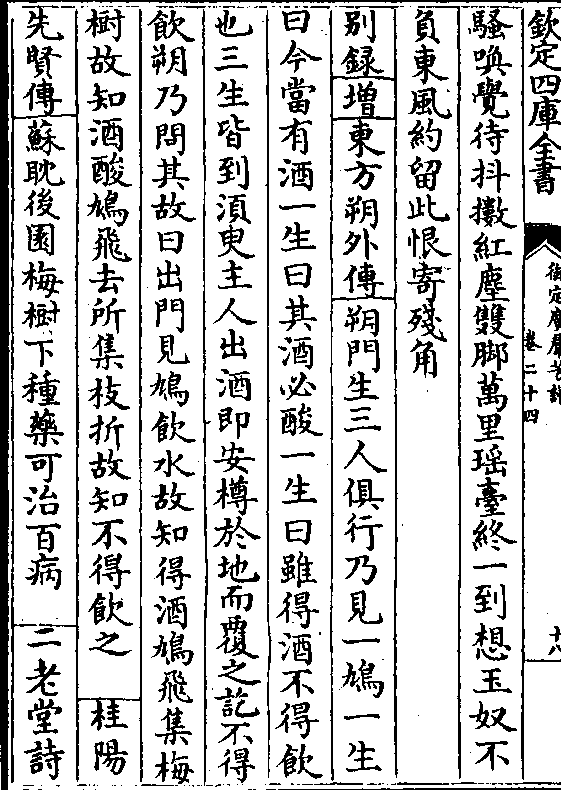 欽定四庫全書
御定廣羣芳譜
卷二十四
十八
騷喚覺待抖擻紅塵雙脚萬里瑶臺終一到想玉奴不
負東風約留此恨寄殘角
别録增東方朔外傳朔門生三人俱行乃見一鳩一生
曰今當有酒一生曰其酒必酸一生曰雖得酒不得飲
也三生皆到須臾主人出酒即安樽於地而覆之訖不得
飲朔乃問其故曰出門見鳩飲水故知得酒鳩飛集梅
樹故知酒酸鳩飛去所集枝折故知不得飲之 桂陽
先賢傳蘇耽後園梅樹下種藥可治百病 二老堂詩